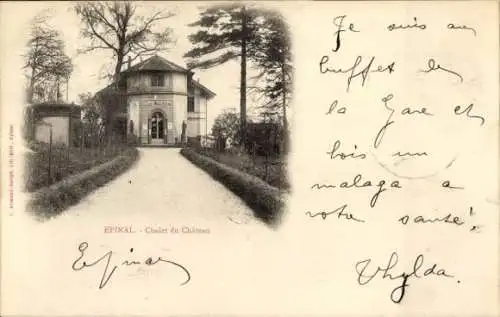 Je suis au
buffet de
la Gare et
bois un
malaga à
votre santé!
Thylda
EPINAL. - Chalet du Château
Epinal